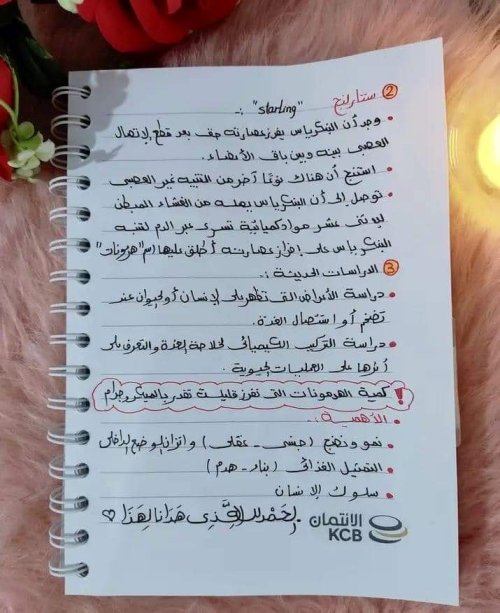 ② ستارلنج "starling" :-
• وجد أن البنكرياس يفرز عصارته حتى بعد قطع الاتصال
العصبى بينه وبين باقى الأعضاء.
• استنتج أن هناك نوعًا آخر من التنبيه غير العصبى
• توصل إلى أن البنكرياس يصله من الغشاء المبطن
للاثنى عشر مواد كميائية تسرى عبر الدم لتنبه
البنكرياس على إفراز عصارته أطلق عليها اسم "هرمونات"
③ الدراسات الحديثة :-
• دراسة الأعراض التى تظهر على الإنسان أو الحيوان عند
تضخم أو استئصال الغدة.
• دراسة التركيب الكيميائى لخلاصة الغدة والتعرف على
أثرها على العمليات الحيوية.
! كمية الهرمونات التى تفرز قليلة تقدر بالميكروجرام
• الأهمية :-
• نمو ونضج (جنسى - عقلى) واتزان الوضع الداخلى
• التمثيل الغذائى (بناء - هدم)
• سلوك الإنسان
الحَمْدُ لله الَّذِى هَدَانَا لِهَذَا ♡
الائتمان
KCB